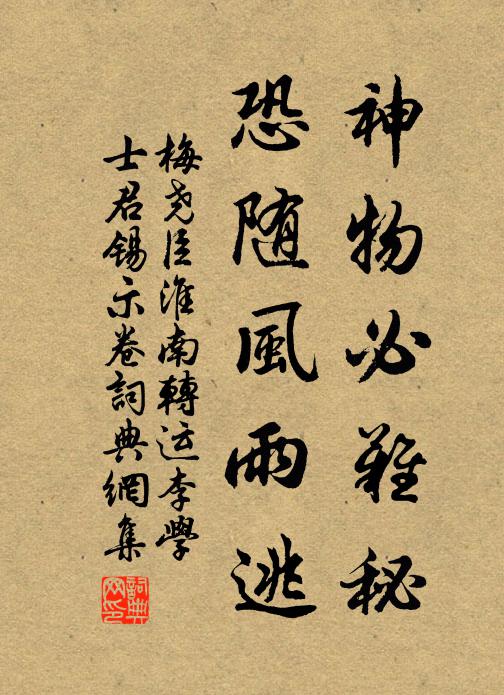 神物必難秘
恐随風雨逃
梅尧臣淮南轉运李學
士君錫示卷詞典網集
詞典网印